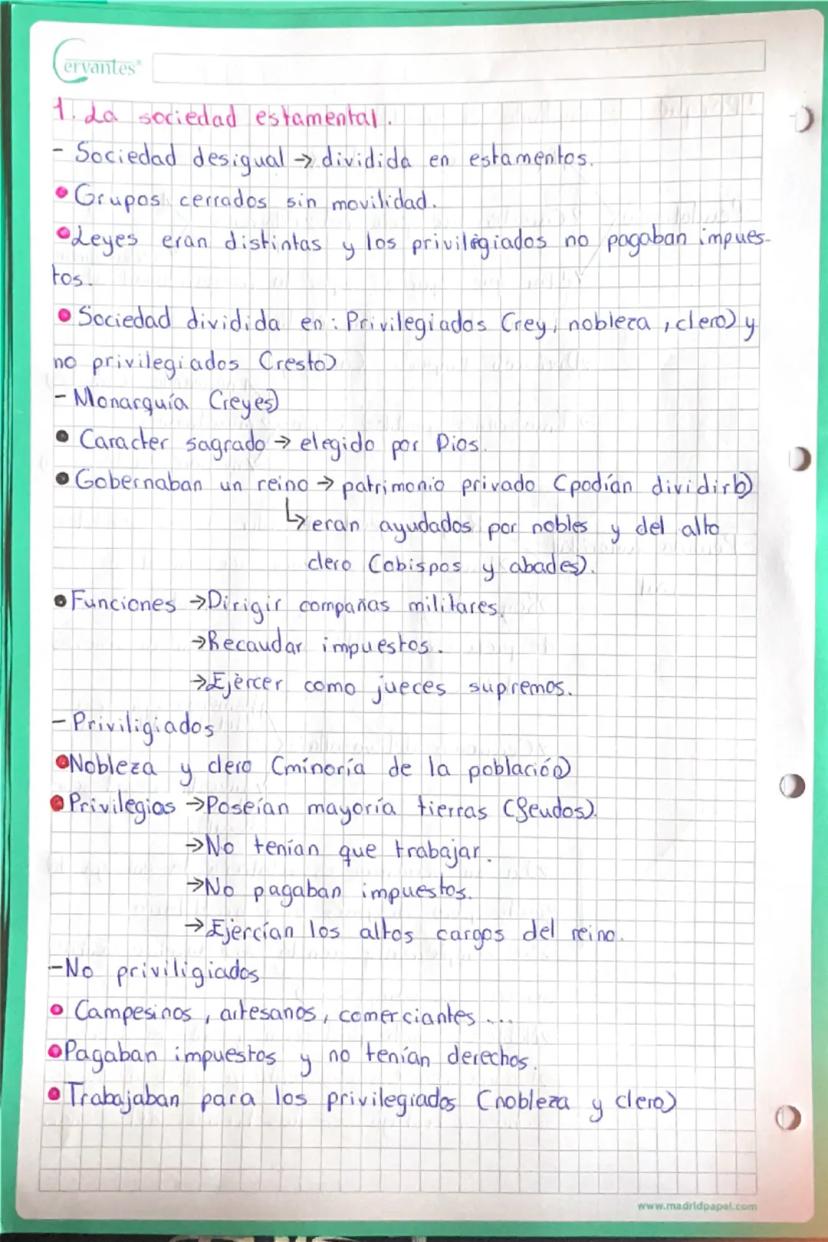 Cervantes®
1. La sociedad estamental.
- Sociedad desigual → dividida en estamentos.
• Grupos cerrados sin movilidad.
• Leyes eran distintas y los privilegiados no pagaban impues-
tos.
• Sociedad dividida en: Privilegiados (rey, nobleza, clero) y
no privilegiados (resto)
- Monarquía (reyes)
• Caracter sagrado → elegido por Dios.
• Gobernaban un reino → patrimonio privado (podían dividirlo)
↳ eran ayudados por nobles y del alto
clero (obispos y abades).
• Funciones → Dirigir compañas militares.
→ Recaudar impuestos.
→ Ejercer como jueces supremos.
- Priviligiados
• Nobleza y clero (minoría de la población)
• Privilegios → Poseían mayoría tierras (feudos).
→ No tenían que trabajar.
→ No pagaban impuestos.
→ Ejercían los altos cargos del reino.
- No priviligiados
• Campesinos, artesanos, comerciantes...
• Pagaban impuestos y no tenían derechos.
• Trabajaban para los privilegiados (nobleza y clero)
www.madridpapel.com